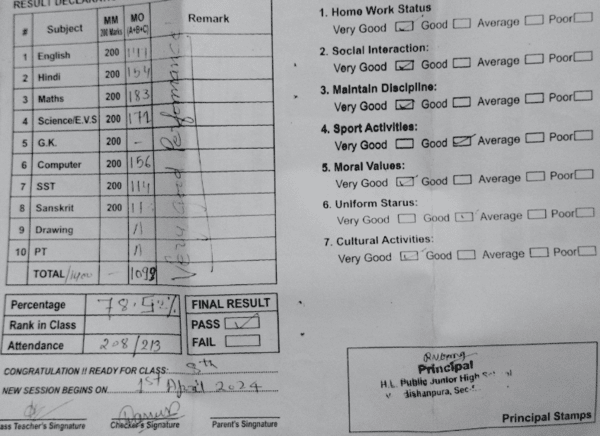 RESULT DECLARA
# Subject MM 200 Marks MO (A+B+C) Remark
1 English 200
2 Hindi 200 154
3 Maths 200 183
4 Science/E.V.S 200 171
5 G.K. 200 -
6 Computer 200 156
7 SST 200 114
8 Sanskrit 200
9 Drawing A
10 PT A
TOTAL/1400 - 1092
Very Good Performance
Percentage
Rank in Class
Attendance 208/213
FINAL RESULT
PASS
FAIL
CONGRATULATION !! READY FOR CLASS: 8th
NEW SESSION BEGINS ON 1st April 2024
ass Teacher's Singnature Checker's Signature Parent's Singnature
1. Home Work Status
Very Good Good Average Poor
2. Social Interaction:
Very Good Good Average Poor
3. Maintain Discipline:
Very Good Good Average Poor
4. Sport Activities:
Very Good Good Average Poor
5. Moral Values:
Very Good Good Average Poor
6. Uniform Starus:
Very Good Good Average Poor
7. Cultural Activities:
Very Good Good Average Poor
Principal
H.L. Public Junior High
ishanpura, Sec
Principal Stamps